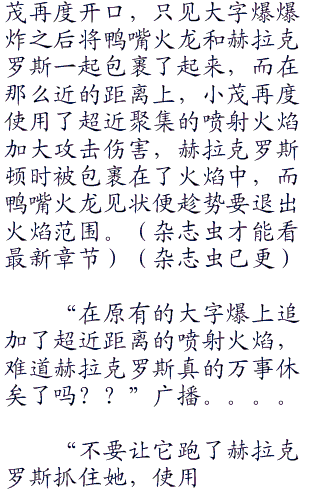 茂再度开口，只见大字爆爆
炸之后将鸭嘴火龙和赫拉克
罗斯一起包裹了起来，而在
那么近的距离上，小茂再度
使用了超近聚集的喷射火焰
加大攻击伤害，赫拉克罗斯
顿时被包裹在了火焰中，而
鸭嘴火龙见状便趁势要退出
火焰范围。（杂志虫才能看
最新章节）（杂志虫已更）
“在原有的大字爆上追
加了超近距离的喷射火焰，
难道赫拉克罗斯真的万事休
矣了吗？？”广播。。。。
“不要让它跑了赫拉克
罗斯抓住她，使用